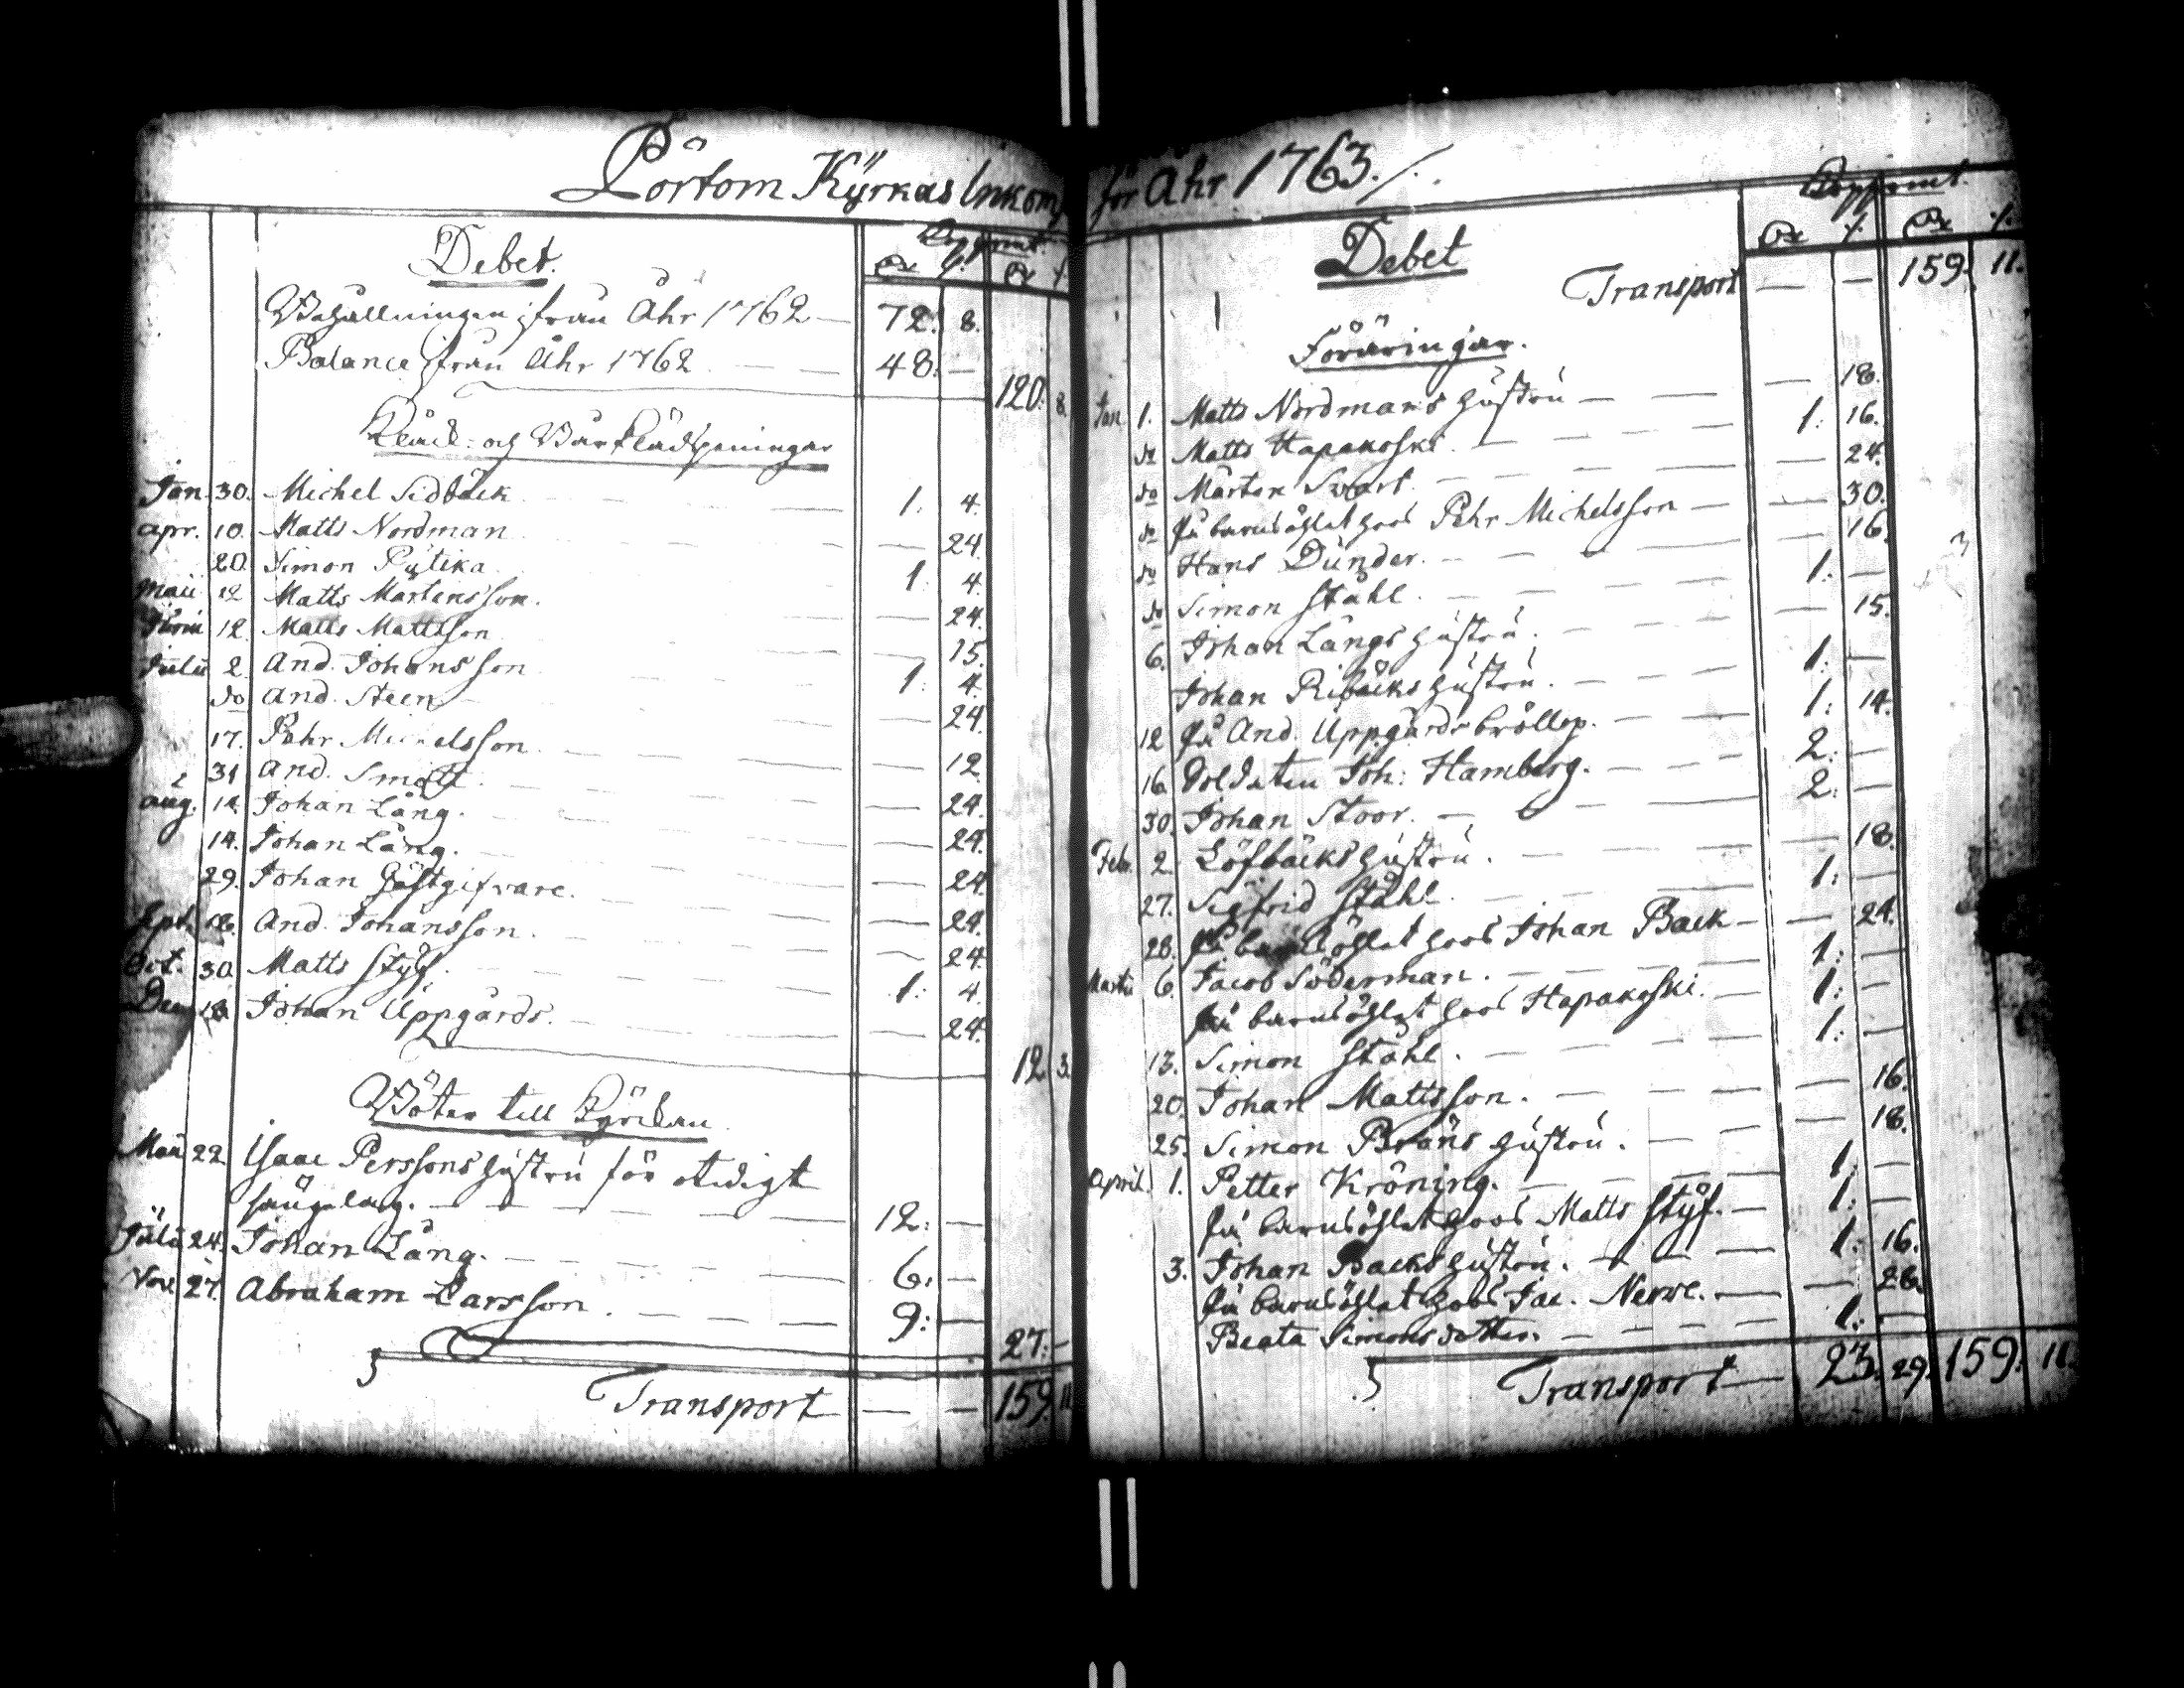 Pörtom Kyrkas Inkomst för Åhr 1763./.
Debet.
Kopparmt.
Behållningen från Åhr 1762 — 72: 8.
Balance från Åhr 1762 — — 48: —
120: 8.
Klåck- och Bårklädspeningar
Jan. 30. Michel Sidbäck — 1: 4.
Apr. 10. Matts Nordman — 24.
20. Simon Pytika 1: 4.
Maii 12 Matts Mårtensson. — 24.
Junii 12. Matts Mattsson — 15.
Julii 2. And. Johansson 1: 4.
do And. Steen — 24.
17. Pehr Michelsson. — 12.
31 And. Smått. — 24.
Aug. 14. Johan Lång. — 24.
14. Johan Lång. — 24.
29. Johan Gästgifvare. — 24.
Sept. 18. And. Johansson. — 24.
Oct. 30. Matts Styf. 1: 4.
Dec. 18. Johan Uppgårds. — 24.
12 3.
Böter till Kyrckan
Maii 22. Isaac Perssons hustru för otidigt
sängelag. — 12: —
Julii 24. Johan Lång. — 6: —
Nov. 27. Abraham Larsson. — 9: —
27: —
Transport — — 159. 11
Debet
Kopparmt.
Transport — — 159. 11.
Föräringar.
Jan 1. Matts Nordmans hustru — — 18.
do Matts Hapakoski. — 1: 16.
do Mårten Swart. — 24.
do På barnsöhlet hoos Pehr Michelsson — — 30.
do Hans Dunder. — 16.
do Simon Ståhl. — 1: —
6. Johan Långs hustru. — 15.
Johan Ribäcks hustru. — 1: —
12 På And. Uppgårds bröllop. — 1: 14.
16 Soldaten Joh: Hamberg. — 2: —
30. Johan Stoor. — 2: —
Febr. 2. Löfbäcks hustru. — 18.
27. Sigfrid Ståhl. — 1: —
28. På barnsöhlet hoos Johan Back — — 24.
Martii 6. Jacob Söderman. — 1: —
På barnsöhlet hoos Hapakoski. — 1: —
13. Simon Ståhl. — 1: —
20. Johan Mattsson. — 16.
25. Simon Bräns hustru. — 18.
April. 1. Petter Kröning. — 1: —
På barnsöhlet hoos Matts Styf. — 1: —
3. Johan Backs hustru. — 1: 16.
På barnsöhlet hoos Jac. Nerwe. — — 28.
Beata Simonsdotter. — 1: —
Transport — 23. 29. 159. 11.